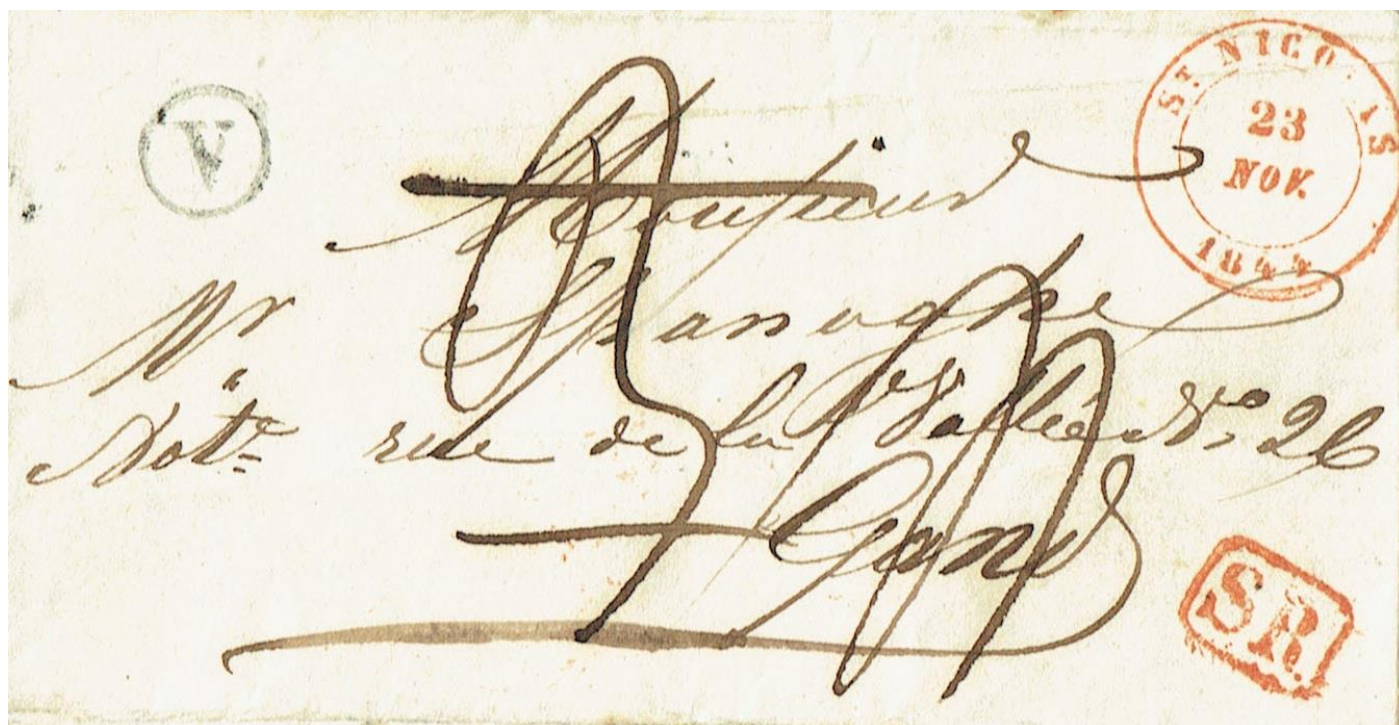 V
ST NICOLAS
23
NOV.
1844
Monsieur
Mr Spanoghe
rue de la Vallée No 26
Gand
SR.